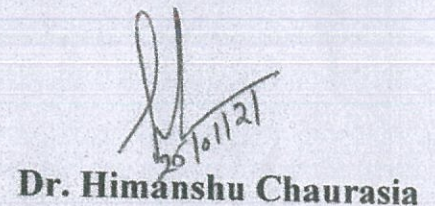 20/01/21
Dr. Himanshu Chaurasia